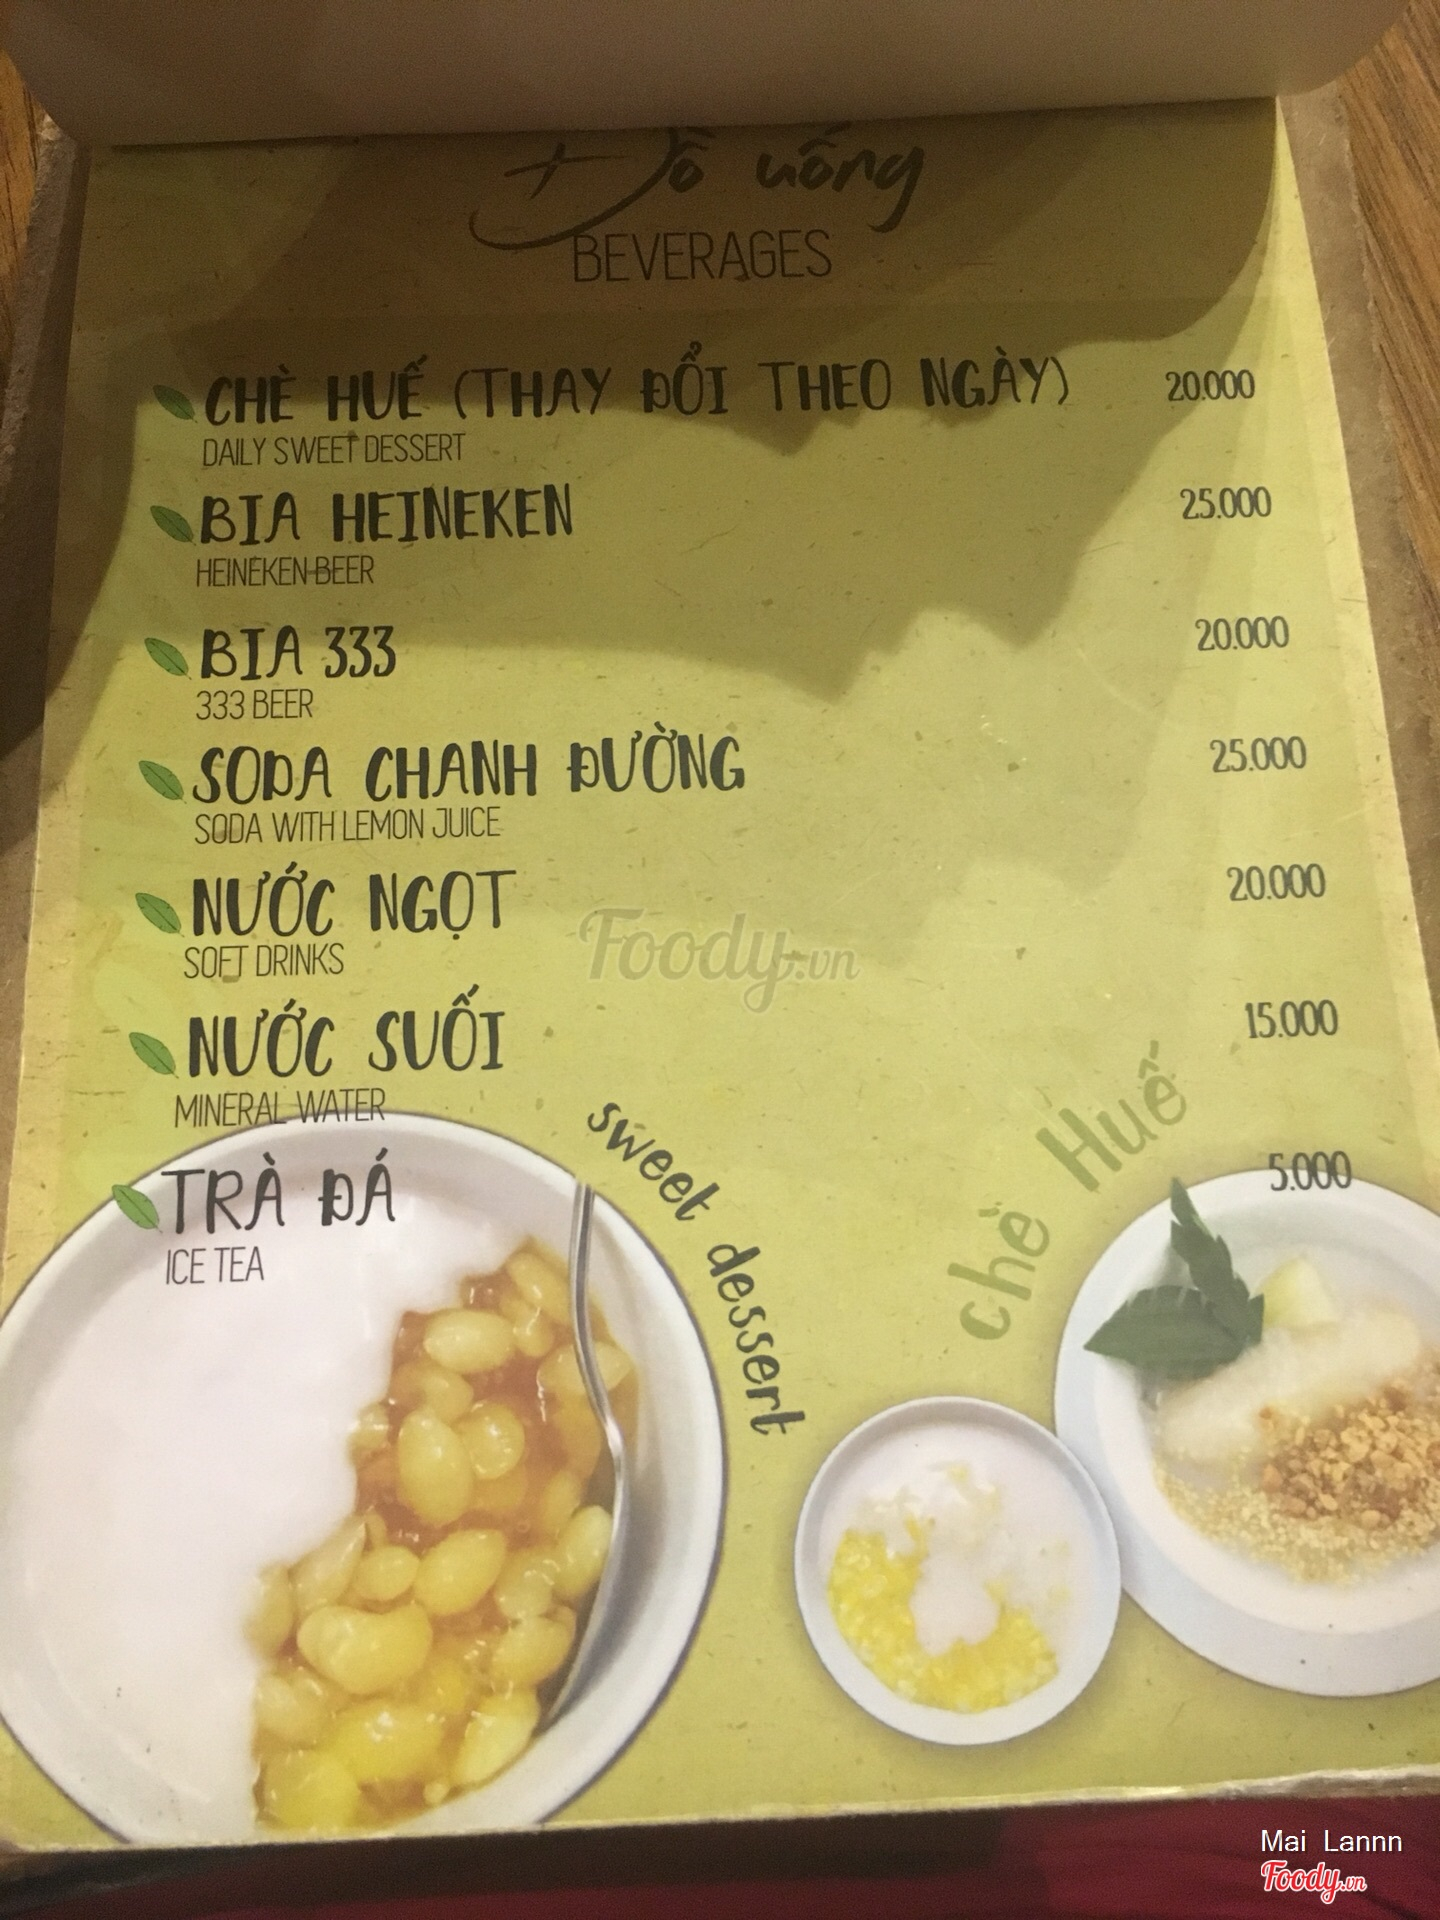 Đồ uống
BEVERAGES
CHÈ HUẾ (THAY ĐỔI THEO NGÀY) 20.000
DAILY SWEET DESSERT
BIA HEINEKEN 25.000
HEINEKEN BEER
BIA 333 20.000
333 BEER
SODA CHANH ĐƯỜNG 25.000
SODA WITH LEMON JUICE
NƯỚC NGỌT 20.000
SOFT DRINKS
Foody.vn
NƯỚC SUỐI 15.000
MINERAL WATER
TRÀ ĐÁ 5.000
ICE TEA
sweet dessert
chè Huế
Mai Lannn
Foody.vn